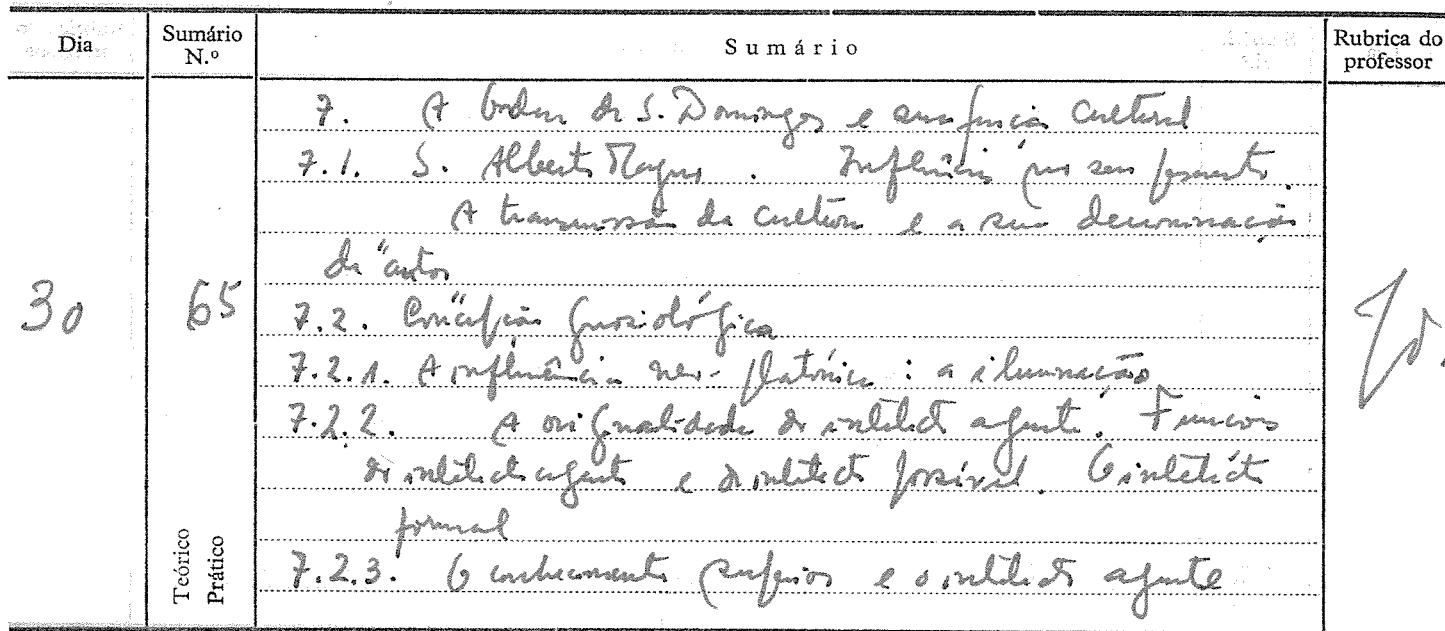 Dia
Sumário N.º
Sumário
Rubrica do professor
7. A Ordem de S. Domingos e sua função cultural
7.1. S. Alberto Magno. Influências no seu pensamento.
A transmissão da cultura e a sua denominação
de "autor"
30
65
7.2. Concepção gnosiológica
7.2.1. A influência neo-platónica: a iluminação
7.2.2. A originalidade do intelecto agente. Funções
do intelecto agente e do intelecto possível. O intelecto
formal
7.2.3. O conhecimento superior e o intelecto agente
Teórico
Prático